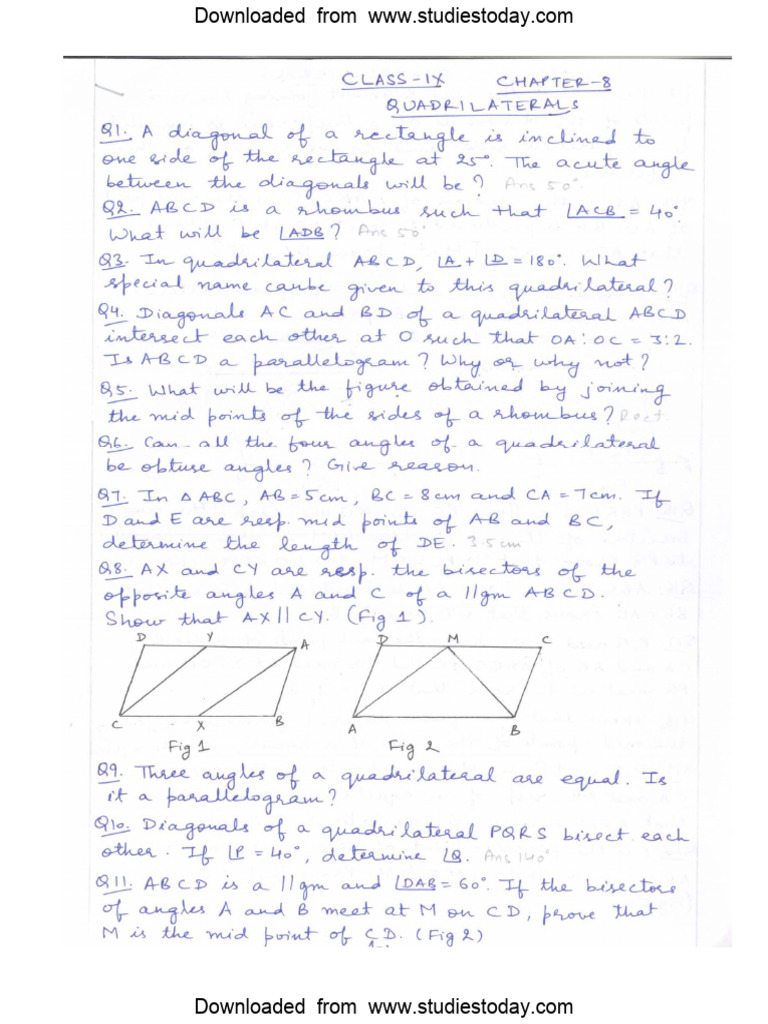 Downloaded from www.studiestoday.com
CLASS-IX CHAPTER-8
QUADRILATERALS
Q1. A diagonal of a rectangle is inclined to
one side of the rectangle at 25°. The acute angle
between the diagonals will be? Ans 50°.
Q2. ABCD is a rhombus such that ∠ACB = 40°.
What will be ∠ADB? Ans 50°
Q3. In quadrilateral ABCD, ∠A + ∠D = 180°. What
special name canbe given to this quadrilateral?
Q4. Diagonals AC and BD of a quadrilateral ABCD
intersect each other at O such that OA:OC = 3:2.
Is ABCD a parallelogram? Why or why not?
Q5. What will be the figure obtained by joining
the mid points of the sides of a rhombus? Rect
Q6. Can all the four angles of a quadrilateral
be obtuse angles? Give reason.
Q7. In △ABC, AB = 5cm, BC = 8cm and CA = 7cm. If
D and E are resp. mid points of AB and BC,
determine the length of DE. 3.5cm
Q8. AX and CY are resp. the bisectors of the
opposite angles A and C of a ||gm ABCD.
Show that AX || CY. (Fig 1).
D Y A
C X B
Fig 1
D M C
A B
Fig 2
Q9. Three angles of a quadrilateral are equal. Is
it a parallelogram?
Q10. Diagonals of a quadrilateral PQRS bisect each
other. If ∠P = 40°, determine ∠Q. Ans 140°
Q11. ABCD is a ||gm and ∠DAB = 60°. If the bisectors
of angles A and B meet at M on CD, prove that
M is the mid point of CD. (Fig 2)
Downloaded from www.studiestoday.com